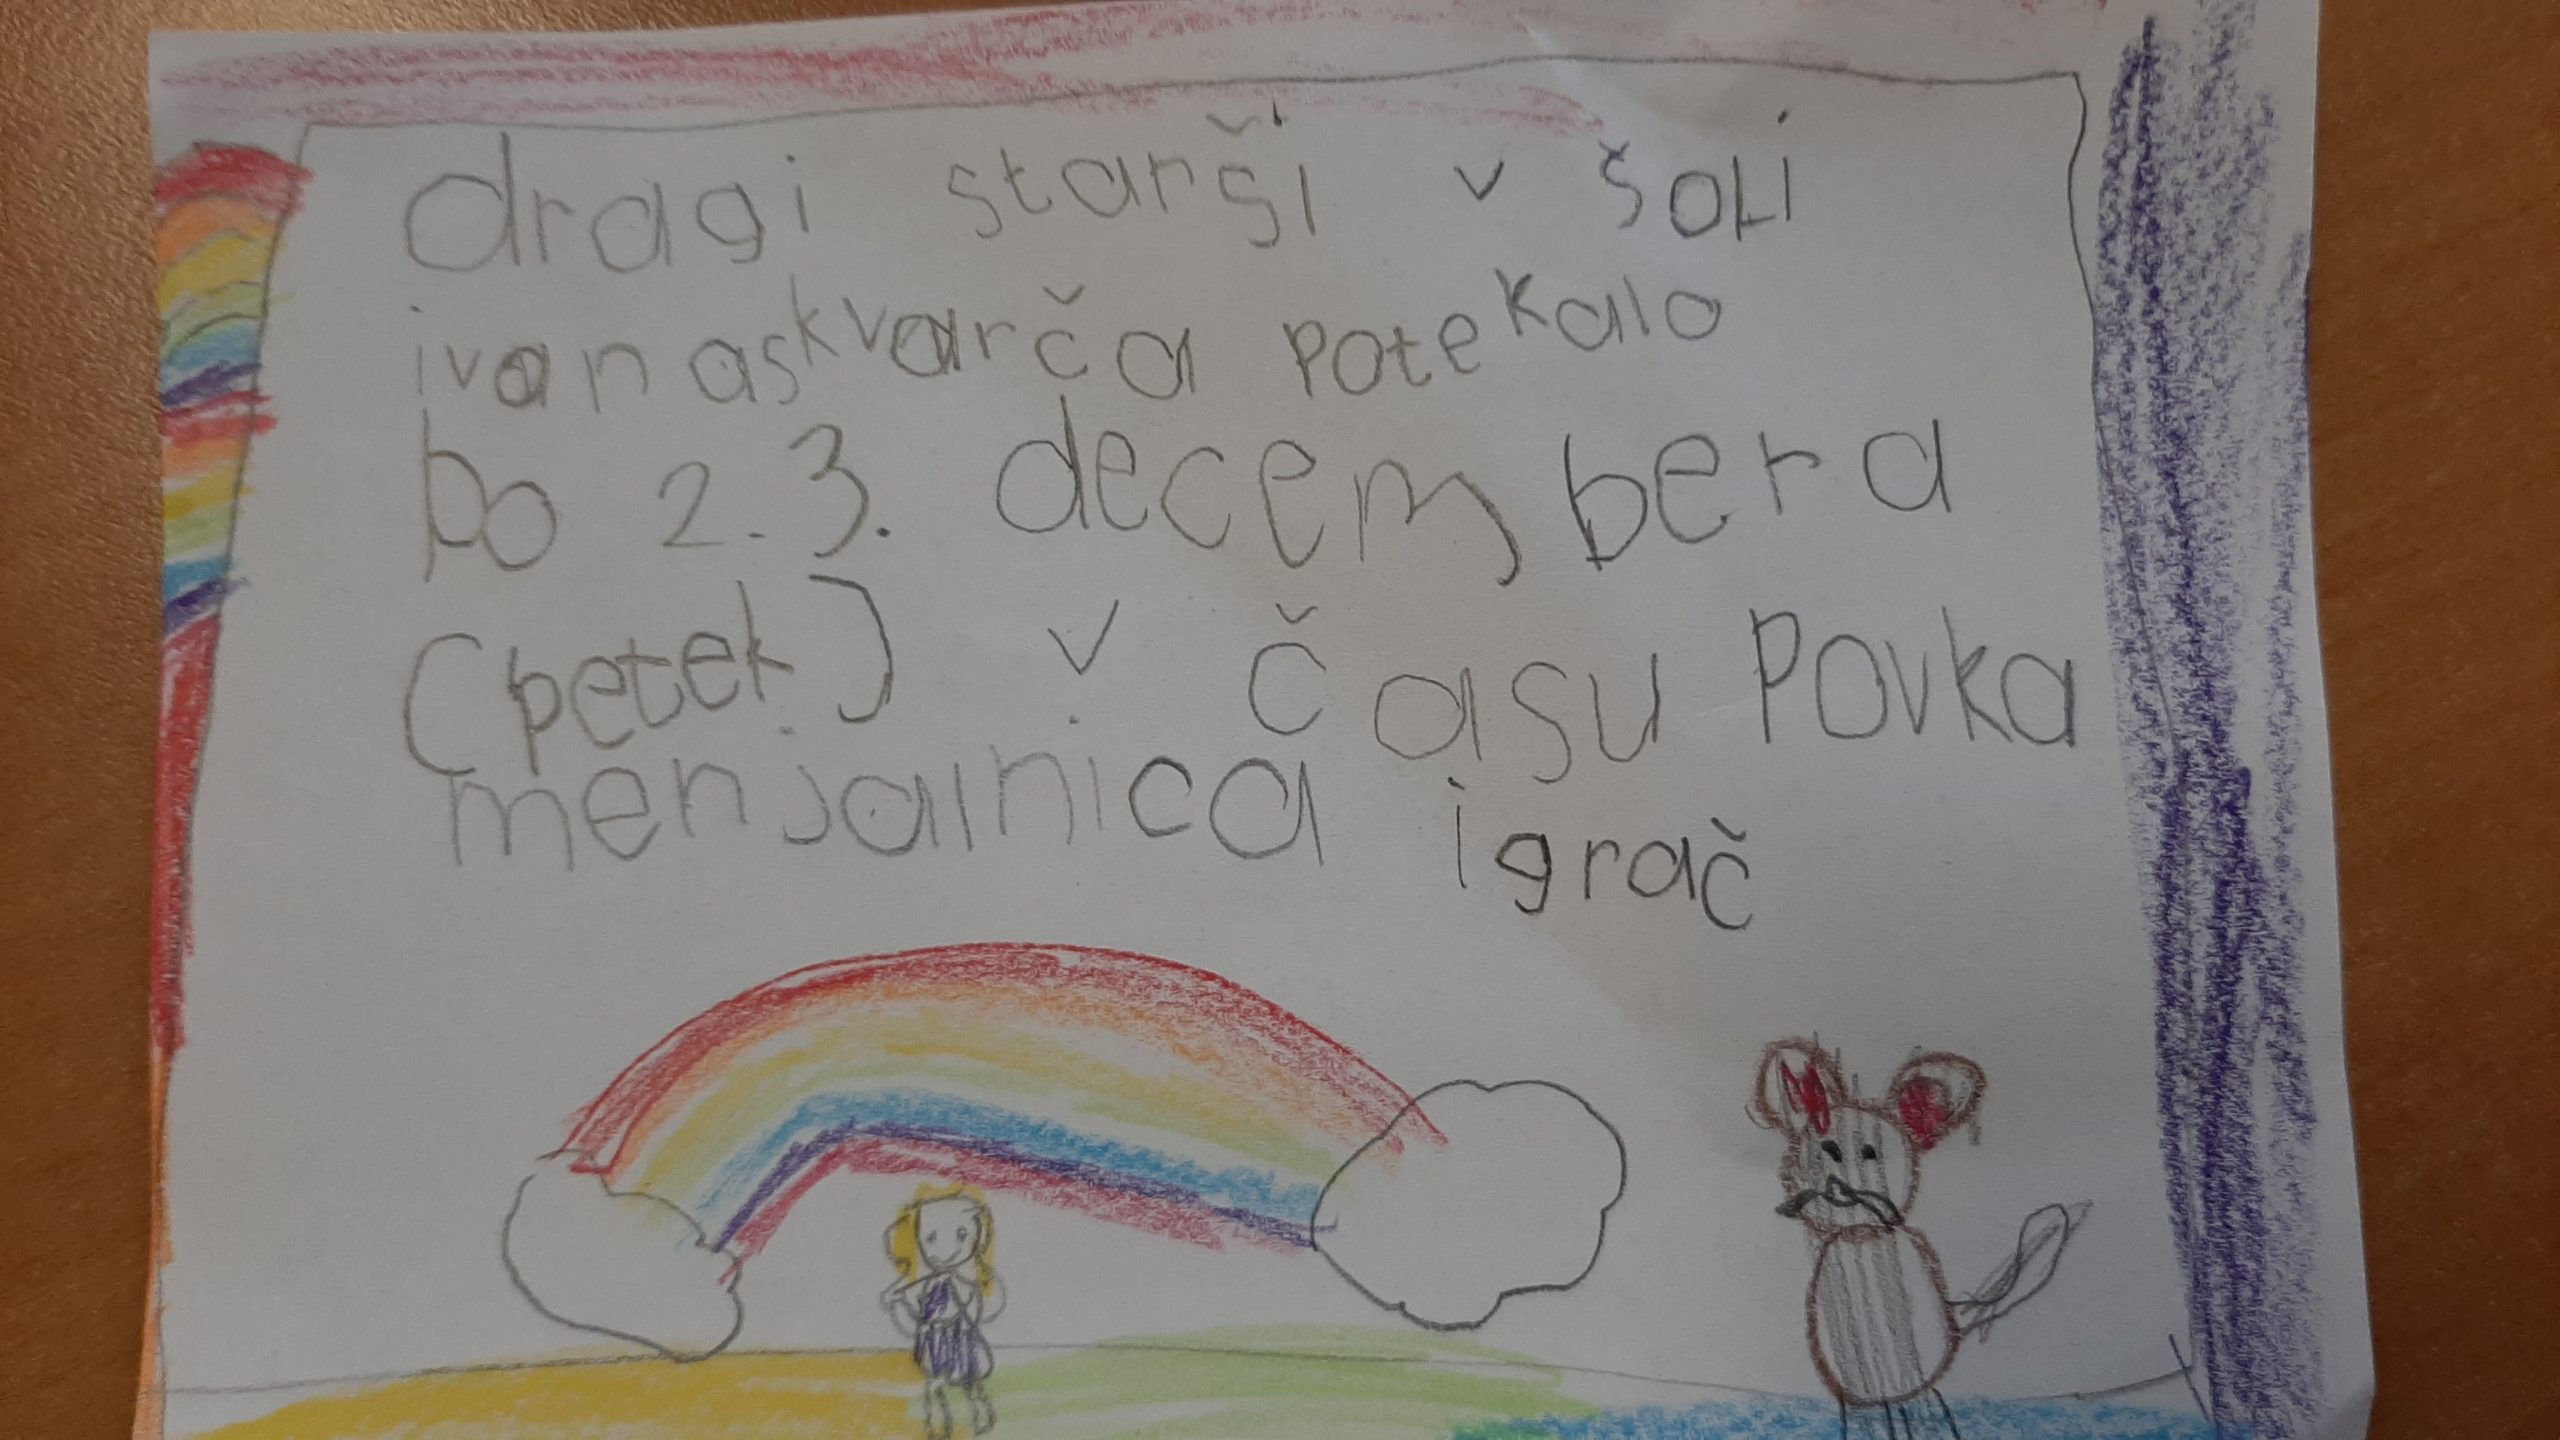 dragi starši v šoli
ivanaskvarča potekalo
bo 2.3. decembera
(petek) v času povka
menjalnica igrač